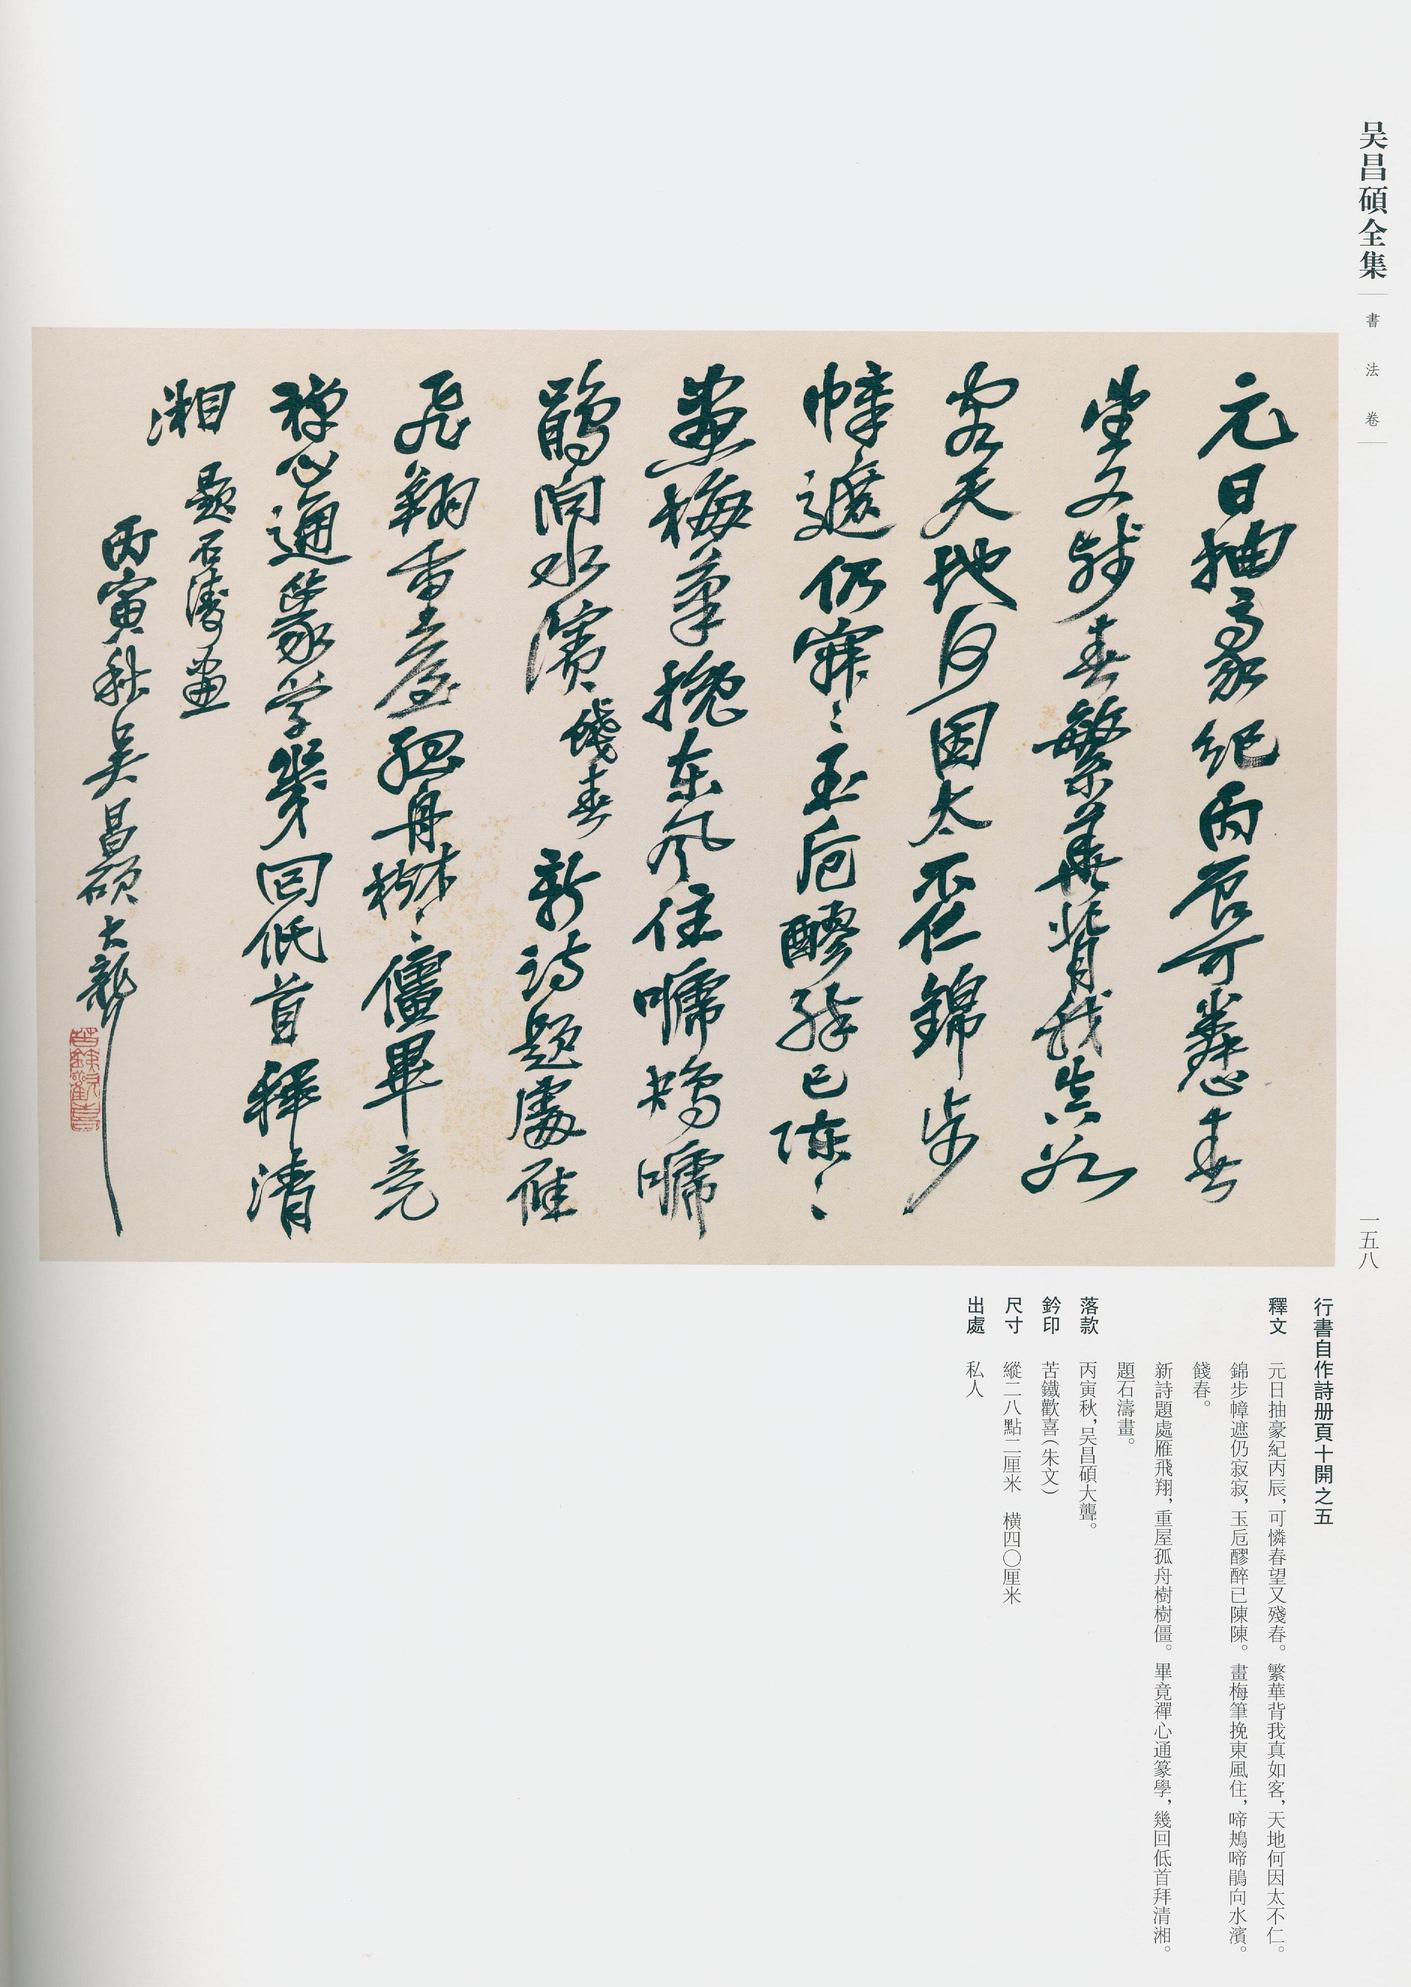 吴昌碩全集
書法卷
一五八
元日抽豪紀丙辰可憐春
望又殘春繁華背我真如
客天地何因太不仁錦步
幛遮仍寂〻玉卮醪醉已陳〻
畫梅筆挽東風住啼鴂啼
鵑向水濱餞春新詩題處雁
飛翔重屋孤舟樹〻僵畢竟
禪心通篆學幾回低首拜清
湘題石濤畫
丙寅秋吴昌碩大聾
苦鐵歡喜
行書自作詩册頁十開之五
釋文 元日抽豪紀丙辰，可憐春望又殘春。繁華背我真如客，天地何因太不仁。
錦步幛遮仍寂寂，玉卮醪醉已陳陳。畫梅筆挽東風住，啼鴂啼鵑向水濱。
餞春。
新詩題處雁飛翔，重屋孤舟樹樹僵。畢竟禪心通篆學，幾回低首拜清湘。
題石濤畫。
落款 丙寅秋，吴昌碩大聾。
鈐印 苦鐵歡喜（朱文）
尺寸 縱二八點二厘米 橫四〇厘米
出處 私人